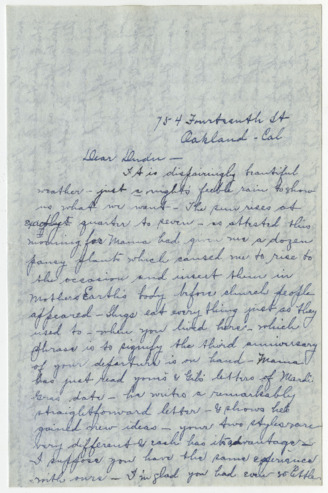 754 Fourteenth St
Oakland - Cal
Dear Dudu -
It is dispairingly beautiful
weather - just a night's rain to show
us what we want - The sun rises at
exactly quarter to seven - as attested this
morning for Mama had given me a dozen
pansy plants which caused me to rise to
the occasion and insert them in
Mother Earth's body before church people
appeared - Slugs eat everything just as they
used to - when you lived here - which
phrase is to signify the third anniversary
of your departure is on hand - Mama
has just read yours & letters of Mardi
Gras date - he writes a remarkably
straightforward letter - & shows he's
gained new ideas - your two styles are
very different & each has its advantage -
I suppose you have the same experience
with ours - I'm glad you had